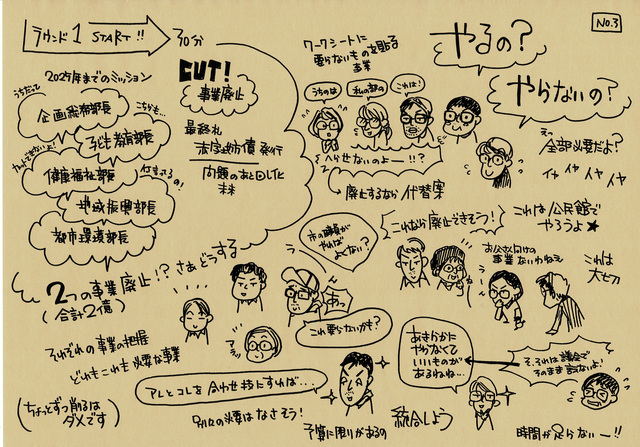 No.3
ラウンド1 START!!
30分
2025年までのミッション
うちだって
企画総務部長
こちらも…
子ども教育部長
健康福祉部長
地域振興部長
都市環境部長
CUT!
事業廃止
最終札
法定赤字債発行
問題のあと回し化
ワークシートに
要らないものを貼る
事業
うちのは
私の部の
これは!
へらせないのよー!!?
廃止するなら代替案
やるの?
やらないの?
えっ
全部必要だよ?
イヤ イヤ イヤ イヤ
これは公民館で
やろうよ★
2つの事業廃止!? さぁどうする
(合計2億)
それぞれの事業の把握
どれもこれも必要な事業
(ちょっとずつ削るは
ダメです)
市の職員が
やれば
よくない?
これなら廃止できそう!
うーん
あっ
これ要らないかも?
お父さん向けの
事業ないわねぇ
うーん
これは
大切
アレとコレを合わせ技にすれば…
別々の必要はなさそう!
予算に限りがあるの
あきらかに
やらなくて
いいものが
あるわね…
統合しよう
そ、それは議会で
そのまま言えないよ!
時間が足らないー!!